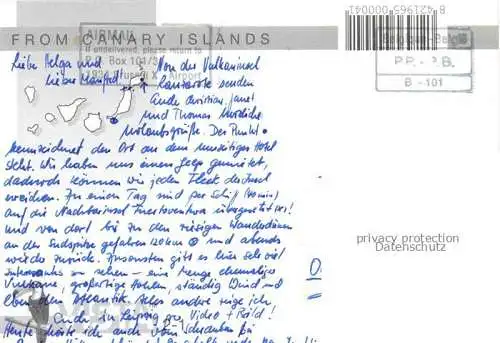 FROM CANARY ISLANDS
AIRMAIL
If undelivered, please return to
Box 101/3
1934 Brussel X Airport
8 421965 000041
Belgium - Belg
P.P. - P.B.
B - 101
Liebe Helga und
lieber Manfred!
Von der Vulkaninsel
Lanzarote senden
Euch Christian, Janet
und Thomas herzliche
Urlaubsgrüße. Der Punkt •
kennzeichnet den Ort an dem unser Hotel
steht. Wir haben uns einen Jeep gemietet,
dadurch können wir jeden Fleck der Insel
erreichen. Zu einem Tag sind per Schiff (40 min)
auf die Nachbarinsel Fuerteventura übergesetzt
und von dort bis zu den riesigen Wanderdünen
an der Südspitze gefahren 120 km und abends
wieder zurück. Ansonsten gibt es hier sehr viel
Interessantes zu sehen – eine Menge ehemaliger
Vulkane, großartige Höhlen, ständig Wind und
eben den Atlantik. Alles andere zeige ich
Euch in Leipzig per Video + Bild!
Heute hörte ich auch vom
privacy protection
Datenschutz